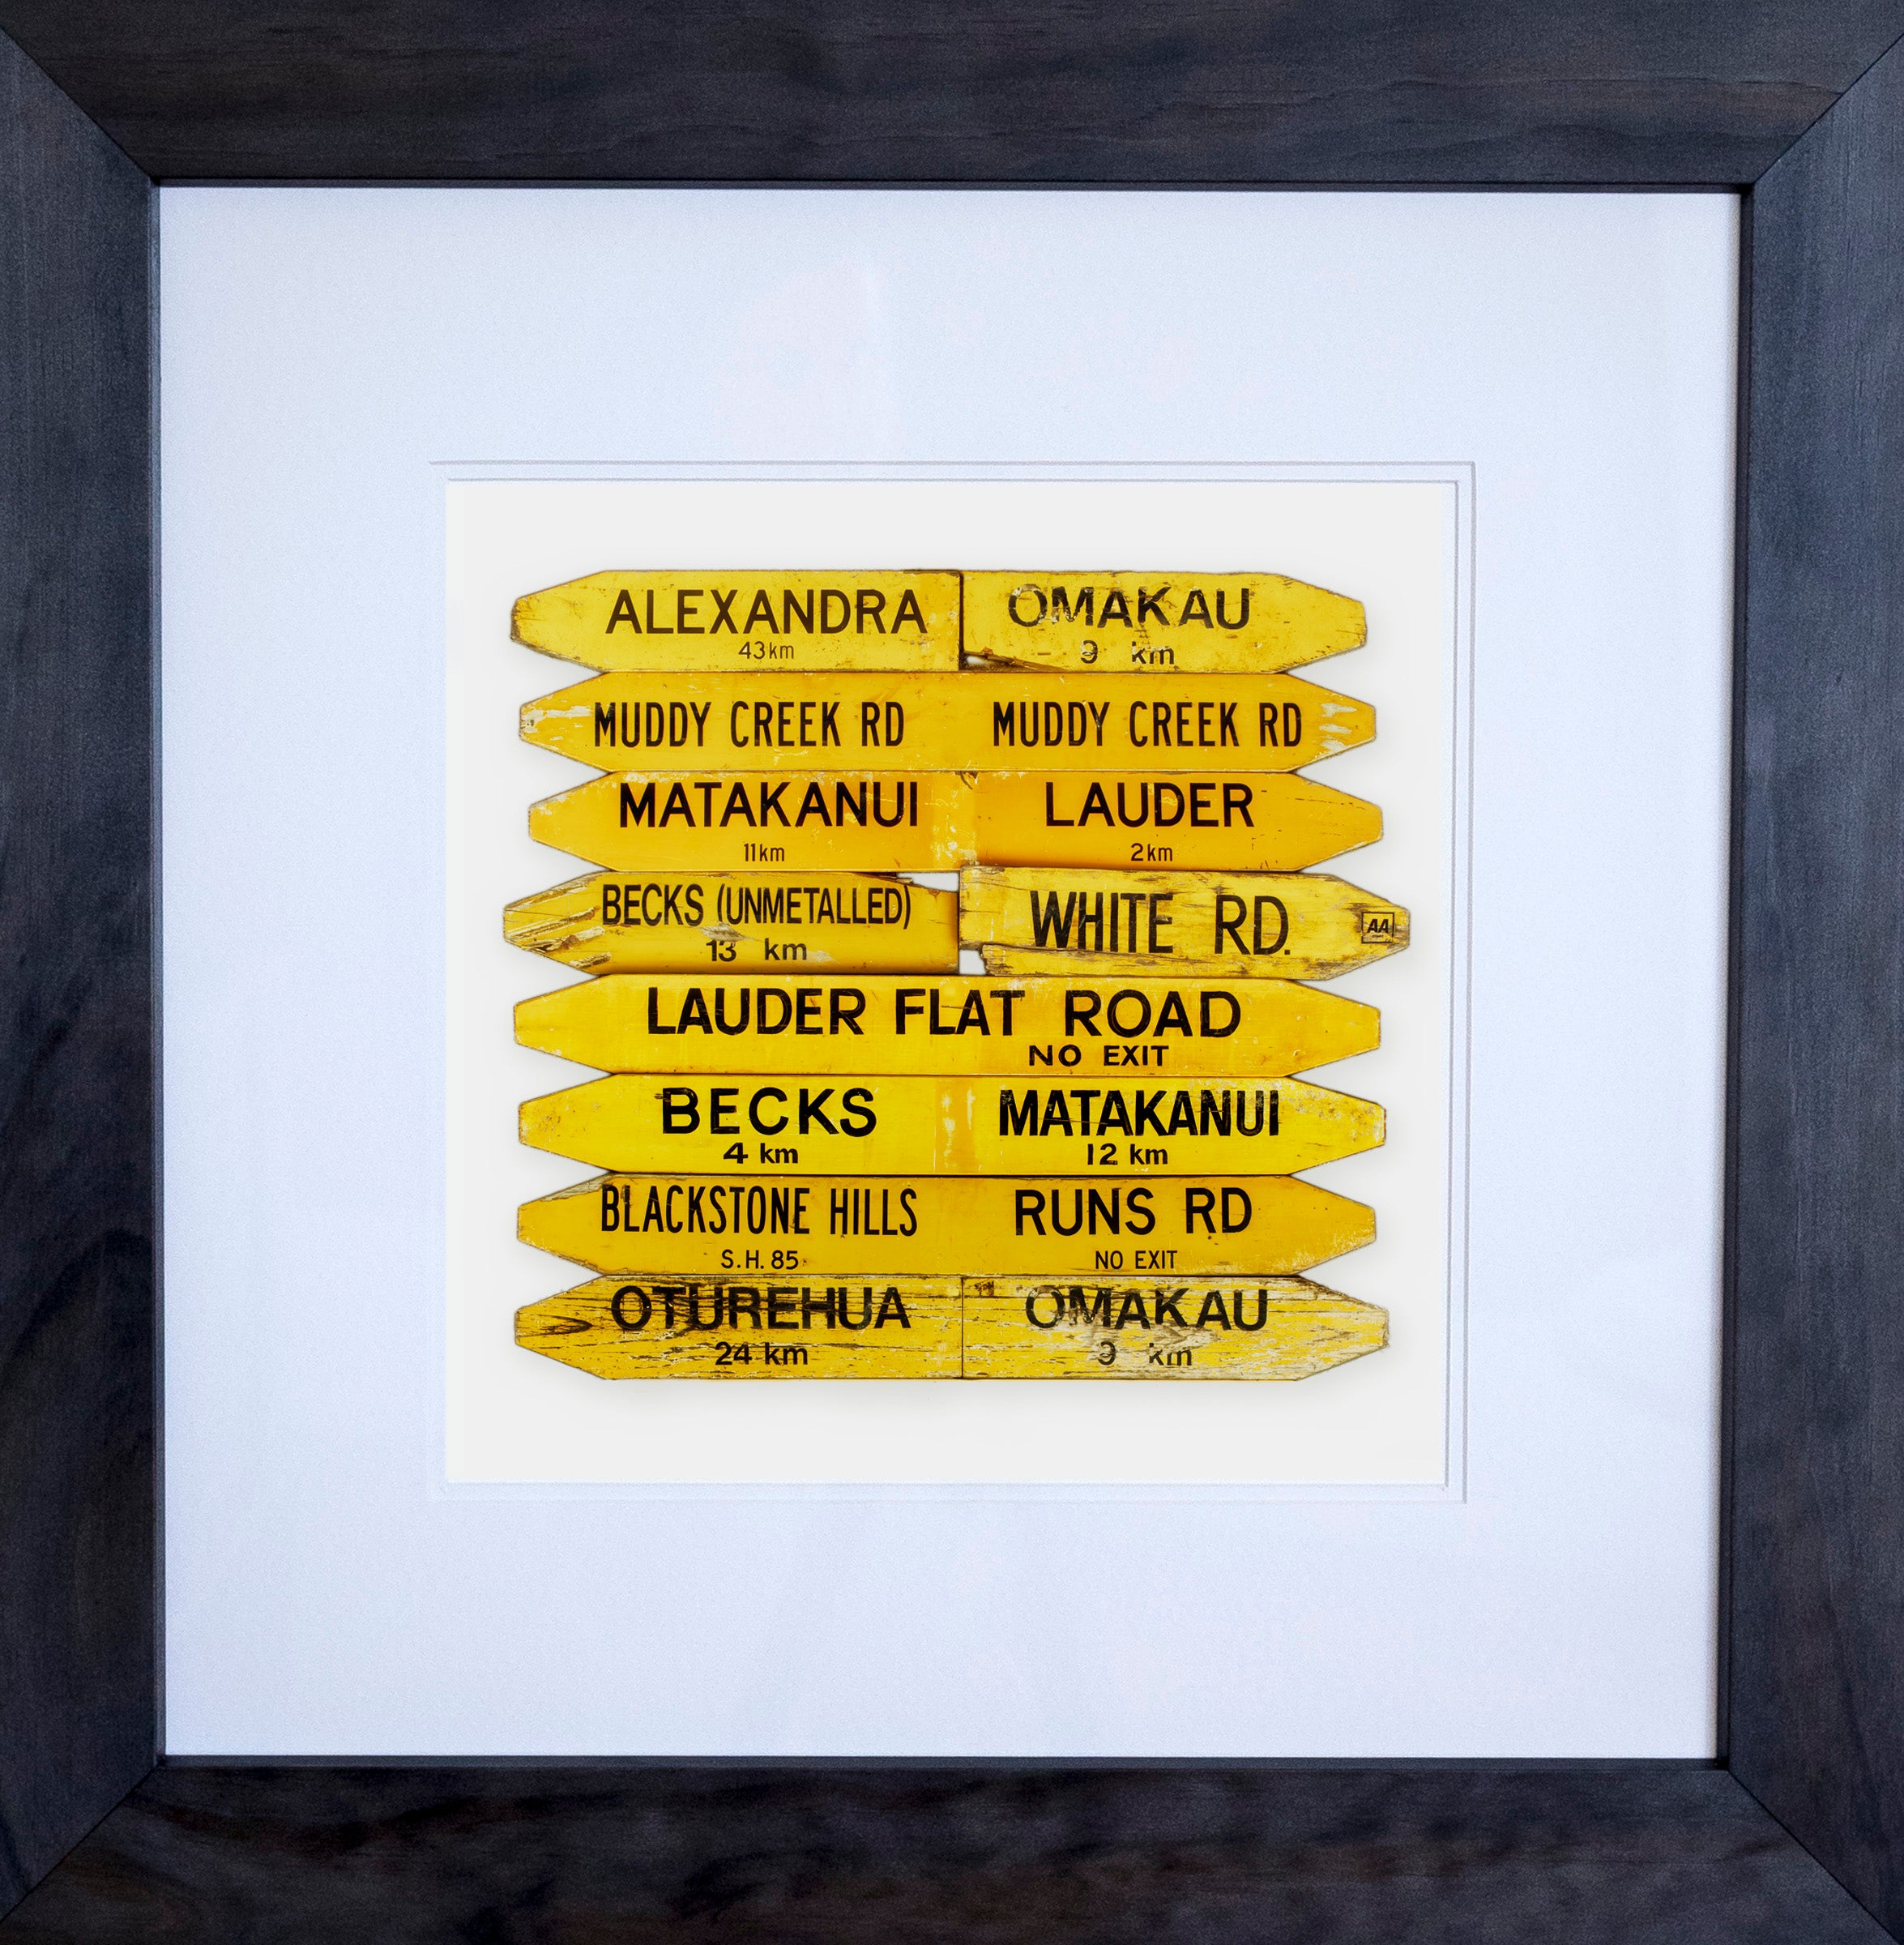 ALEXANDRA OMAKAU
43km 9 km
MUDDY CREEK RD MUDDY CREEK RD
MATAKANUI LAUDER
11km 2km
BECKS (UNMETALLED) WHITE RD.
13 km AA
LAUDER FLAT ROAD
NO EXIT
BECKS MATAKANUI
4 km 12 km
BLACKSTONE HILLS RUNS RD
S.H. 85 NO EXIT
OTUREHUA OMAKAU
24 km 9 km